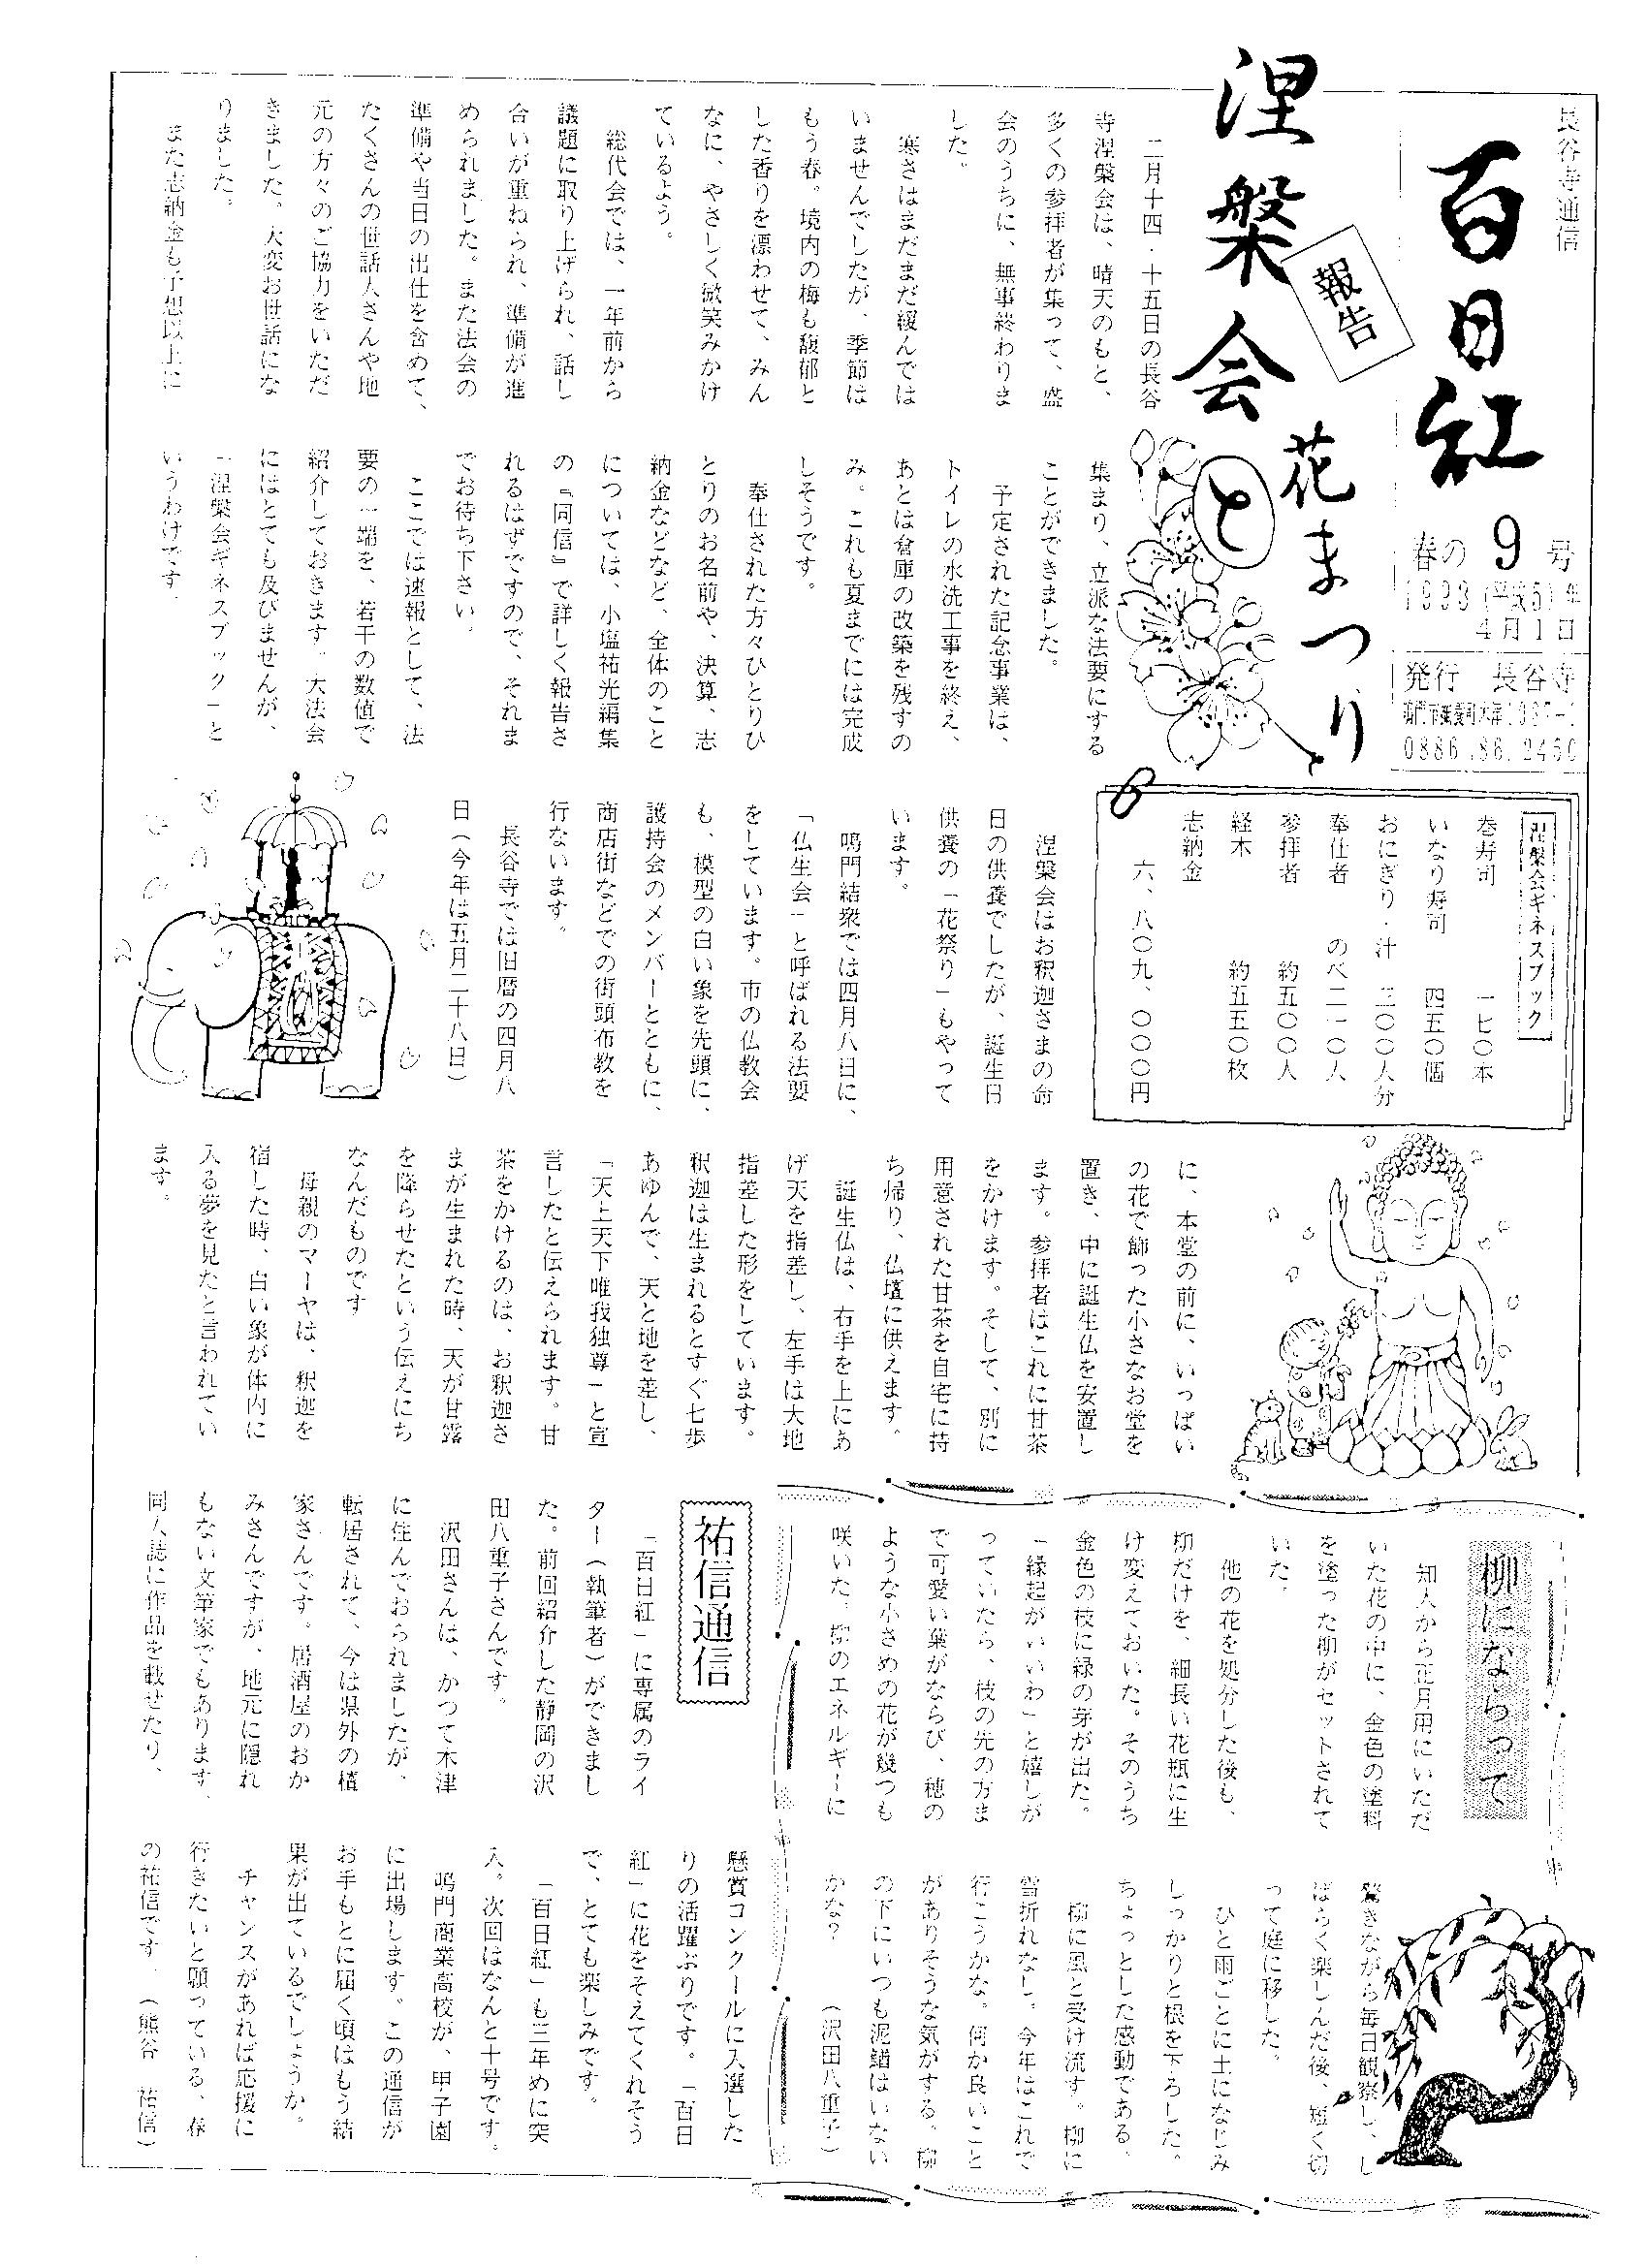 長谷寺通信
百日紅
春の9号
1993(平成5)年
4月1日
発行 長谷寺
0886.86.2450
報告
涅槃会
と
花まつり
二月十四・十五日の長谷
寺涅槃会は、晴天のもと、
多くの参拝者が集って、盛
会のうちに、無事終わりま
した。
寒さはまだまだ緩んでは
いませんでしたが、季節は
もう春。境内の梅も馥郁と
した香りを漂わせて、みん
なに、やさしく微笑みかけ
ているよう。
総代会では、一年前から
議題に取り上げられ、話し
合いが重ねられ、準備が進
められました。また法会の
準備や当日の出仕を含めて、
たくさんの世話人さんや地
元の方々のご協力をいただ
きました。大変お世話にな
りました。
また志納金も予想以上に
集まり、立派な法要にする
ことができました。
予定された記念事業は、
トイレの水洗工事を終え、
あとは倉庫の改築を残すの
み。これも夏までには完成
しそうです。
奉仕された方々ひとりひ
とりのお名前や、決算、志
納金などなど、全体のこと
については、小塩祐光編集
の『同信』で詳しく報告さ
れるはずですので、それま
でお待ち下さい。
ここでは速報として、法
要の一端を、若干の数値で
紹介しておきます。大法会
にはとても及びませんが、
「涅槃会ギネスブック」と
いうわけです。
涅槃会ギネスブック
巻寿司 一七〇本
いなり寿司 四五〇個
おにぎり・汁 三〇〇人分
奉仕者 のべ二一〇人
参拝者 約五〇〇人
経木 約五五〇枚
志納金
六、八〇九、〇〇〇円
涅槃会はお釈迦さまの命
日の供養でしたが、誕生日
供養の「花祭り」もやって
います。
鳴門結衆では四月八日に、
「仏生会」と呼ばれる法要
をしています。市の仏教会
も、模型の白い象を先頭に、
護持会のメンバーとともに、
商店街などでの街頭布教を
行ないます。
長谷寺では旧暦の四月八
日(今年は五月二十八日)
に、本堂の前に、いっぱい
の花で飾った小さなお堂を
置き、中に誕生仏を安置し
ます。参拝者はこれに甘茶
をかけます。そして、別に
用意された甘茶を自宅に持
ち帰り、仏壇に供えます。
誕生仏は、右手を上にあ
げ天を指差し、左手は大地
指差した形をしています。
釈迦は生まれるとすぐ七歩
あゆんで、天と地を差し、
「天上天下唯我独尊」と宣
言したと伝えられます。甘
茶をかけるのは、お釈迦さ
まが生まれた時、天が甘露
を降らせたという伝えにち
なんだものです
母親のマーヤは、釈迦を
宿した時、白い象が体内に
入る夢を見たと言われてい
ます。
柳にならって
知人から正月用にいただ
いた花の中に、金色の塗料
を塗った柳がセットされて
いた。
他の花を処分した後も、
柳だけを、細長い花瓶に生
け変えておいた。そのうち
金色の枝に緑の芽が出た。
「縁起がいいわ」と嬉しが
っていたら、枝の先の方ま
で可愛い葉がならび、穂の
ような小さめの花が幾つも
咲いた。柳のエネルギーに
驚きながら毎日観察し、し
ばらく楽しんだ後、短く切
って庭に移した。
ひと雨ごとに土になじみ
しっかりと根を下ろした。
ちょっとした感動である。
柳に風と受け流す。柳に
雪折れなし。今年はこれで
行こうかな。何か良いこと
がありそうな気がする。柳
の下にいつも泥鰌はいない
かな? (沢田八重子)
祐信通信
「百日紅」に専属のライ
ター(執筆者)ができまし
た。前回紹介した静岡の沢
田八重子さんです。
沢田さんは、かつて木津
に住んでおられましたが、
転居されて、今は県外の植
家さんです。居酒屋のおか
みさんですが、地元に隠れ
もない文筆家でもあります。
同人誌に作品を載せたり、
懸賞コンクールに入選した
りの活躍ぶりです。「百日
紅」に花をそえてくれそう
で、とても楽しみです。
「百日紅」も三年めに突
入。次回はなんと十号です。
鳴門商業高校が、甲子園
に出場します。この通信が
お手もとに届く頃はもう結
果が出ているでしょうか。
チャンスがあれば応援に
行きたいと願っている、春
の祐信です。(熊谷 祐信)